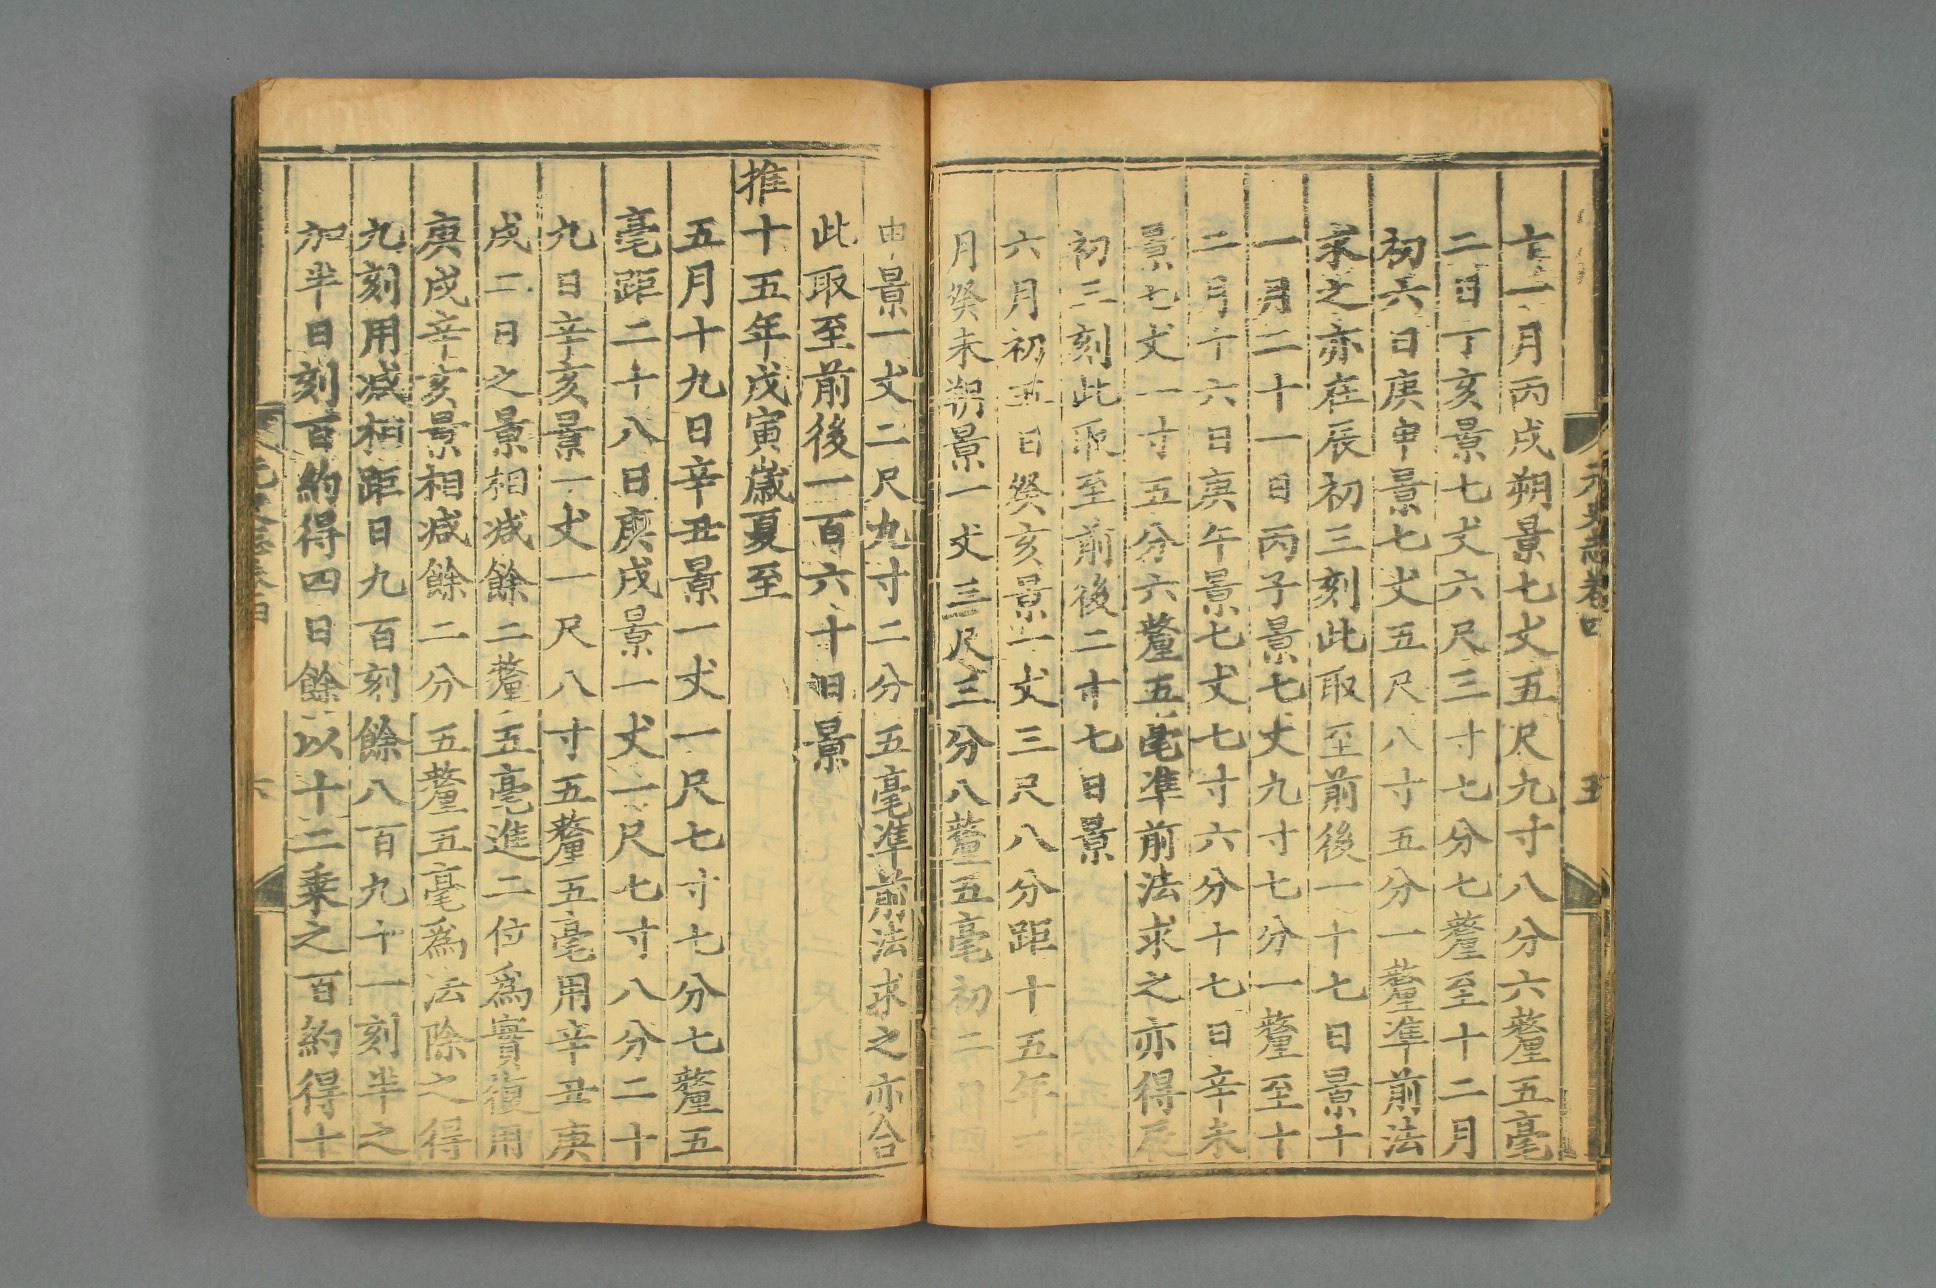 元史志卷四
五
十一月丙戌朔景七丈五尺九寸八分六釐五毫
二日丁亥景七丈六尺三寸七分七釐至十二月
初六日庚申景七丈五尺八寸五分一釐準前法
求之亦在辰初三刻此取至前後一十七日景十
一月二十一日丙子景七丈九寸七分一釐至十
二月十六日庚午景七丈七寸六分十七日辛未
景七丈一寸五分六釐五毫準前法求之亦得辰
初三刻此取至前後二十七日景
六月初五日癸亥景一丈三尺八分距十五年
月癸未朔景一丈三尺三分八釐五毫初二
景一丈二尺九寸二分五毫準前法求之亦合
此取至前後一百六十日景
推十五年戊寅歲夏至
五月十九日辛丑景一丈一尺七寸七分七釐五
毫距二十八日庚戌景一丈一尺七寸八分二十
九日辛亥景一丈一尺八寸五釐五毫用辛丑庚
戌二日之景相減餘二釐五毫進二位爲實復用
庚戌辛亥景相減餘二分五釐五毫爲法除之得
九刻用減相距日九百刻餘八百九十一刻半之
加半日刻百約得四日餘以十二乘之百約得十
六